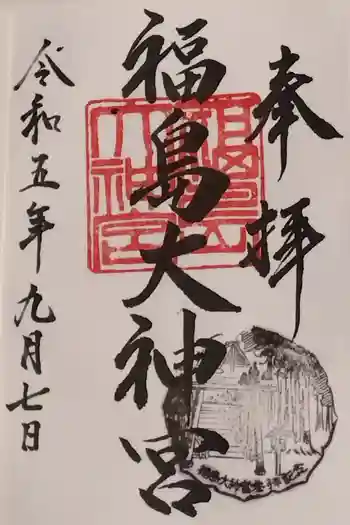 奉拝
福島大神宮
令和五年九月七日
福島大神宮